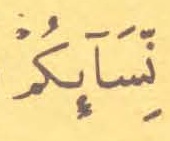 نِّسَآىِٕكُمۡ